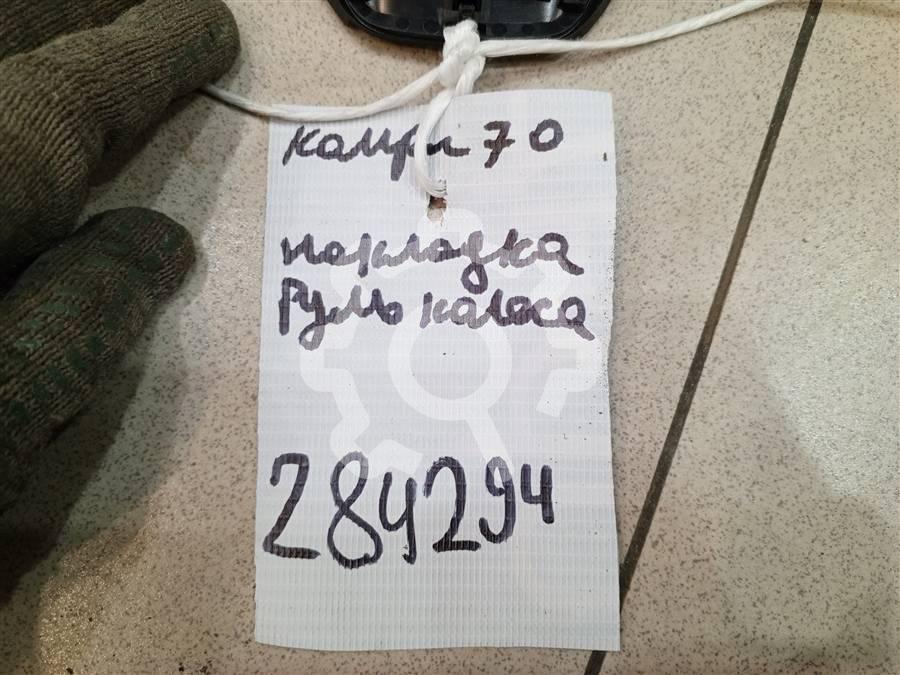 Камри 70
накладка
Руль колеса
284294